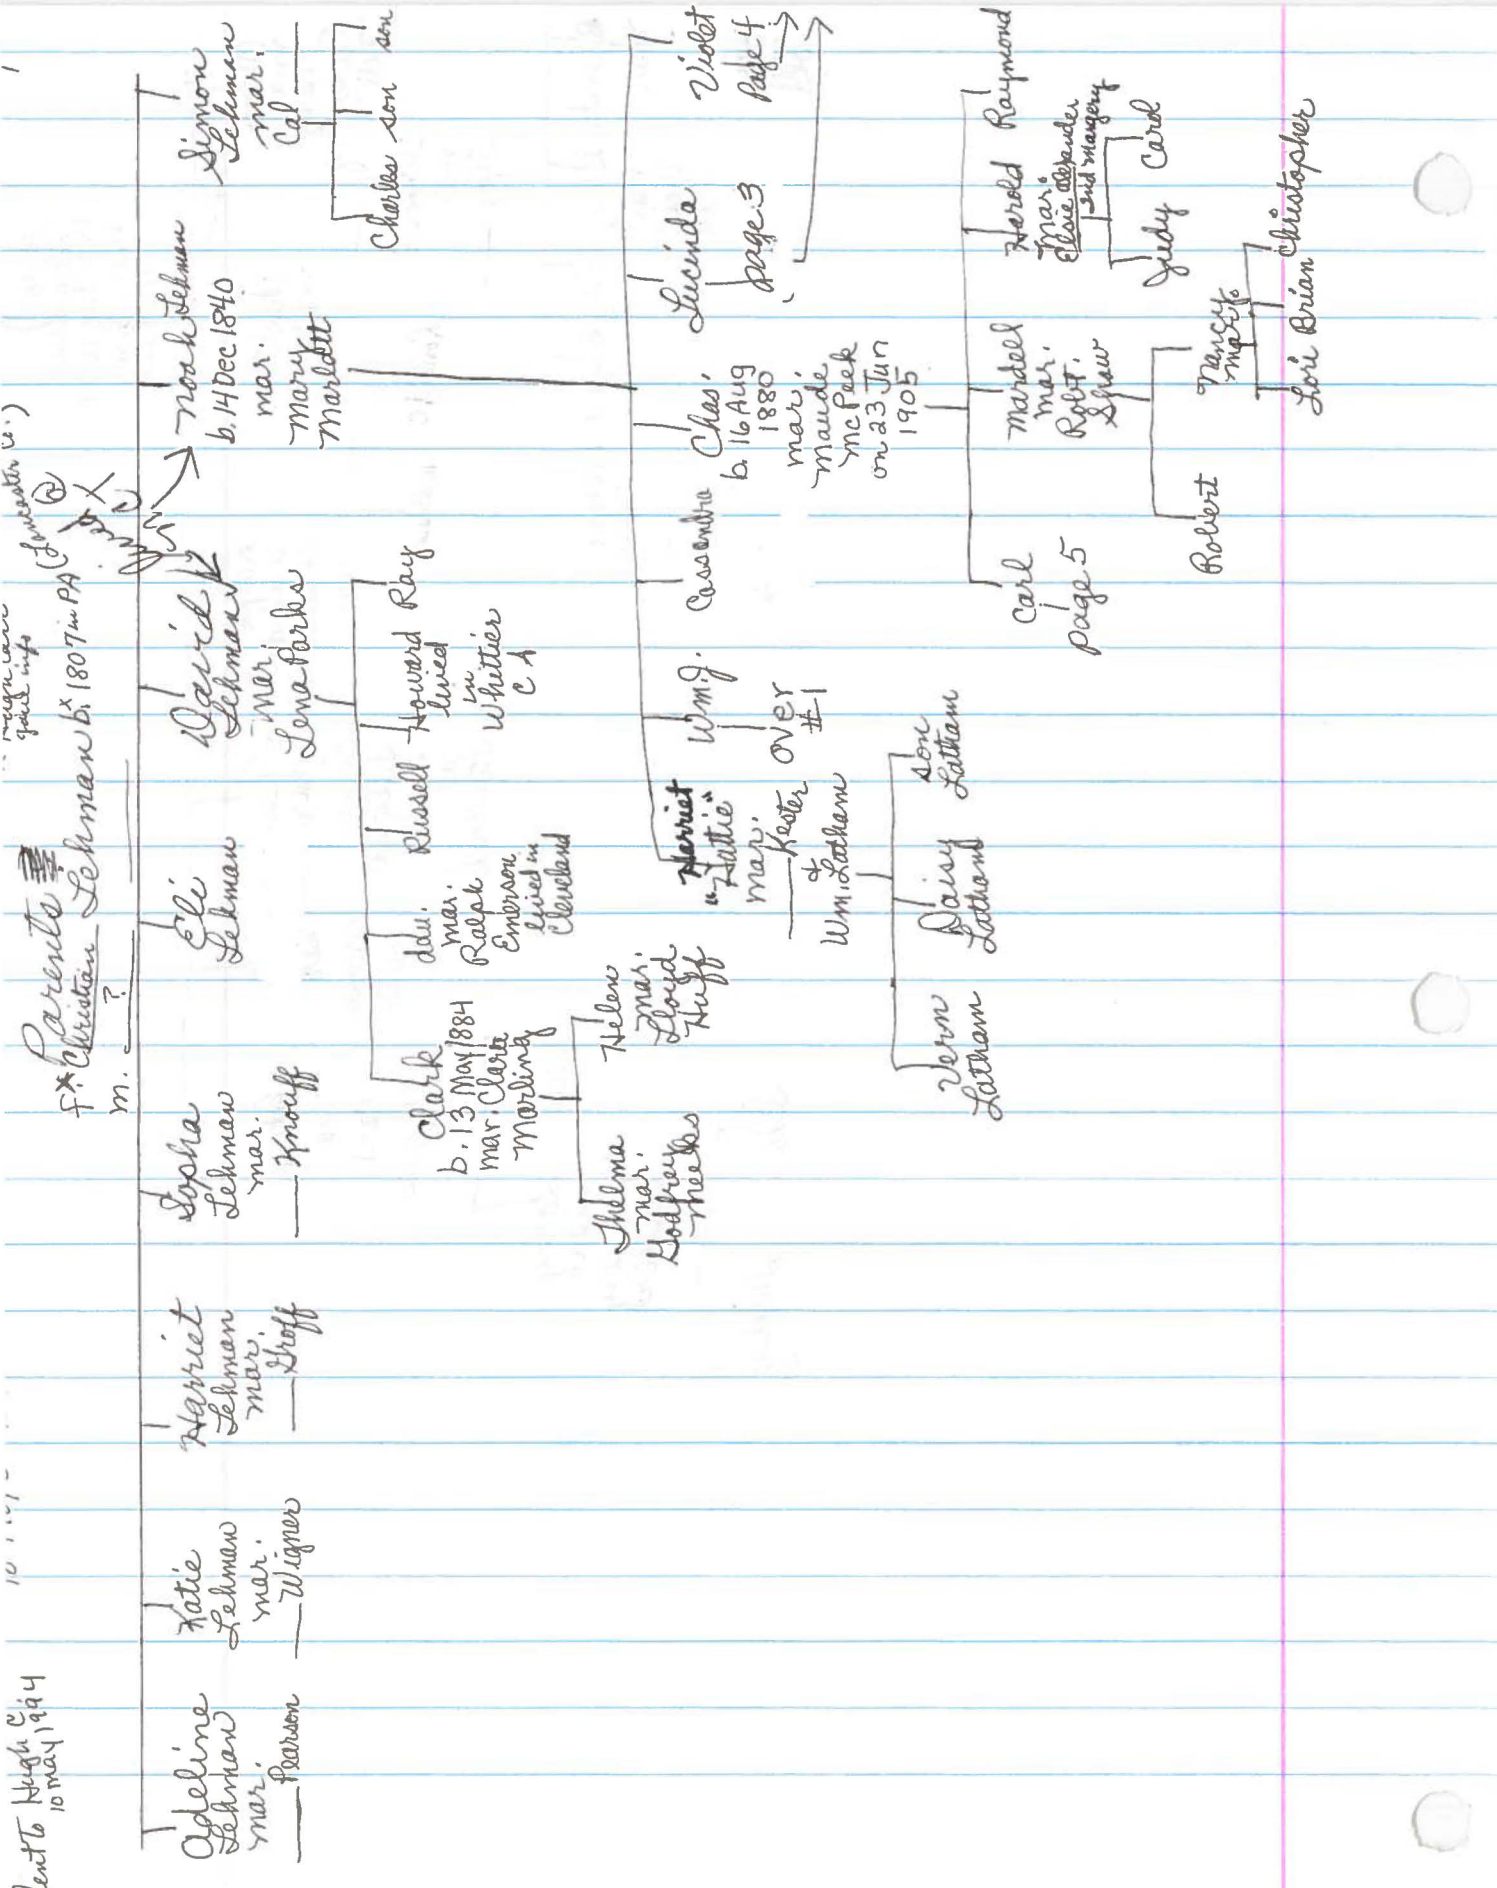 Sent to Hugh C
10 May 1994
1
Parents
F* Christian Lehman b.* 1807 in PA (Lancaster Co.)
m. ?
Adeline
Lehman
mar.
Pearson
Katie
Lehman
mar.
Wigner
Harriet
Lehman
mar.
Groff
Sopha
Lehman
mar.
Knouff
Eli
Lehman
David
Lehman
mar.
Lena Parks
Noah Lehman
b. 14 Dec 1840
mar.
Mary
Marlatt
Simon
Lehman
mar.
Cal
Clark
b. 13 May 1884
mar. Clara
Marling
mar.
Ralph
Emerson
lived in
Cleveland
Russell
Howard
lived
in
Whittier
CA
Ray
Charles
son
son
Thelma
mar.
Godfrey
Meeks
Helen
mar.
Lloyd
Huff
Harriet
"Hattie"
mar.
Kester
&
Wm. Latham
Wm. J.
over
#1
Cassandra
Chas.
b. 16 Aug
1880
mar.
Maude
McPeek
on 23 Jun
1905
Lucinda
page 3
Violet
Page 4
Vern
Latham
Daisy
Latham
son
Latham
Carl
page 5
Mardell
mar.
Robt.
Shaw
Harold
mar.
Elsie Alexander
2nd Margery
Raymond
Robert
Nancy
mar.
Judy
Carol
Lori
Brian
Christopher